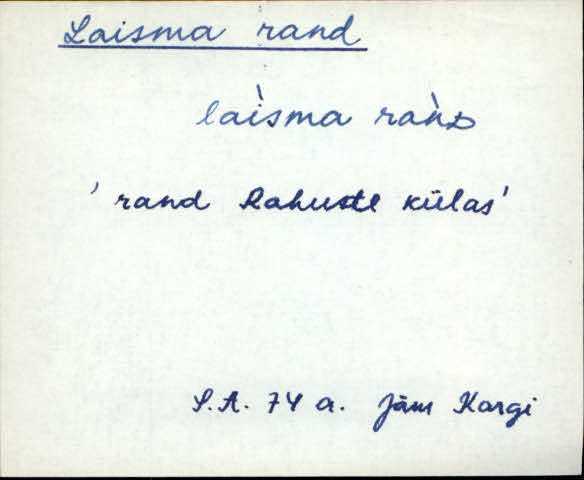 Laisma rand
laìsma ràǹᴅ
'rand Rahuste külas'
S.A. 74 a. Jäm Kargi